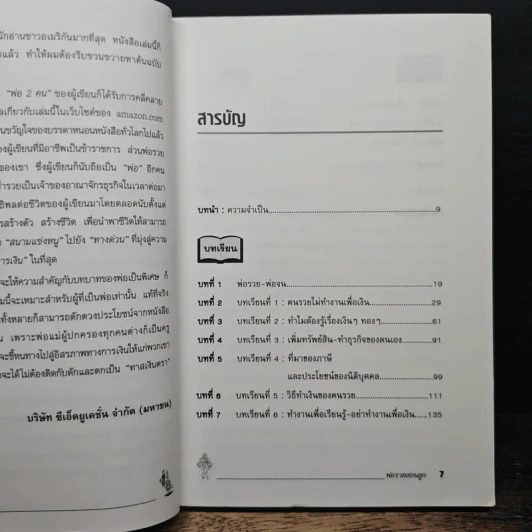 นักอ่านชาวอเมริกันมากที่สุด หนังสือเล่มนี้ก็
แล้ว ทำให้ผมต้องรีบขวนขวายหาต้นฉบับ
"พ่อ 2 คน" ของผู้เขียนก็ได้รับการคลี่คลาย
ลเกี่ยวกับเล่มนี้ในเว็บไซต์ของ amazon.com
นขวัญใจของบรรดาหนอนหนังสือทั่วโลกไปแล้ว
องผู้เขียนที่มีอาชีพเป็นข้าราชการ ส่วนพ่อรวย
ของเขา ซึ่งผู้เขียนก็นับถือเป็น "พ่อ" อีกคน
ร่ำรวยเป็นเจ้าของอาณาจักรธุรกิจในเวลาต่อมา
ธิพลต่อชีวิตของผู้เขียนมาโดยตลอดนับตั้งแต่
รสร้างตัว สร้างชีวิต เพื่อนำพาชีวิตให้สามารถ
"สนามแข่งหนู" ไปยัง "ทางด่วน" ที่มุ่งสู่ความ
เงิน" ในที่สุด
จะให้ความสำคัญกับบทบาทของพ่อเป็นพิเศษ ก็
มนี้จะเหมาะสำหรับผู้ที่เป็นพ่อเท่านั้น แท้ที่จริง
ทั้งหลายก็สามารถตักตวงประโยชน์จากหนังสือ
น เพราะพ่อแม่ผู้ปกครองทุกคนต่างก็เป็นครู
จะชี้หนทางไปสู่อิสรภาพทางการเงินให้แก่พวกเขา
จะได้ไม่ต้องติดกับดักและตกเป็น "ทาสเงินตรา"
บริษัท ซีเอ็ดยูเคชั่น จำกัด (มหาชน)
สารบัญ
บทนำ : ความจำเป็น.....................................................9
บทเรียน
บทที่ 1 พ่อรวย-พ่อจน.....................................................19
บทที่ 2 บทเรียนที่ 1 : คนรวยไม่ทำงานเพื่อเงิน....................29
บทที่ 3 บทเรียนที่ 2 : ทำไมต้องรู้เรื่องเงินๆ ทองๆ................61
บทที่ 4 บทเรียนที่ 3 : เพิ่มทรัพย์สิน-ทำธุรกิจของตนเอง.........91
บทที่ 5 บทเรียนที่ 4 : ที่มาของภาษี
และประโยชน์ของนิติบุคคล.................99
บทที่ 6 บทเรียนที่ 5 : วิธีทำเงินของคนรวย.......................111
บทที่ 7 บทเรียนที่ 6 : ทำงานเพื่อเรียนรู้-อย่าทำงานเพื่อเงิน......135
พ่อรวยสอนลูก 7